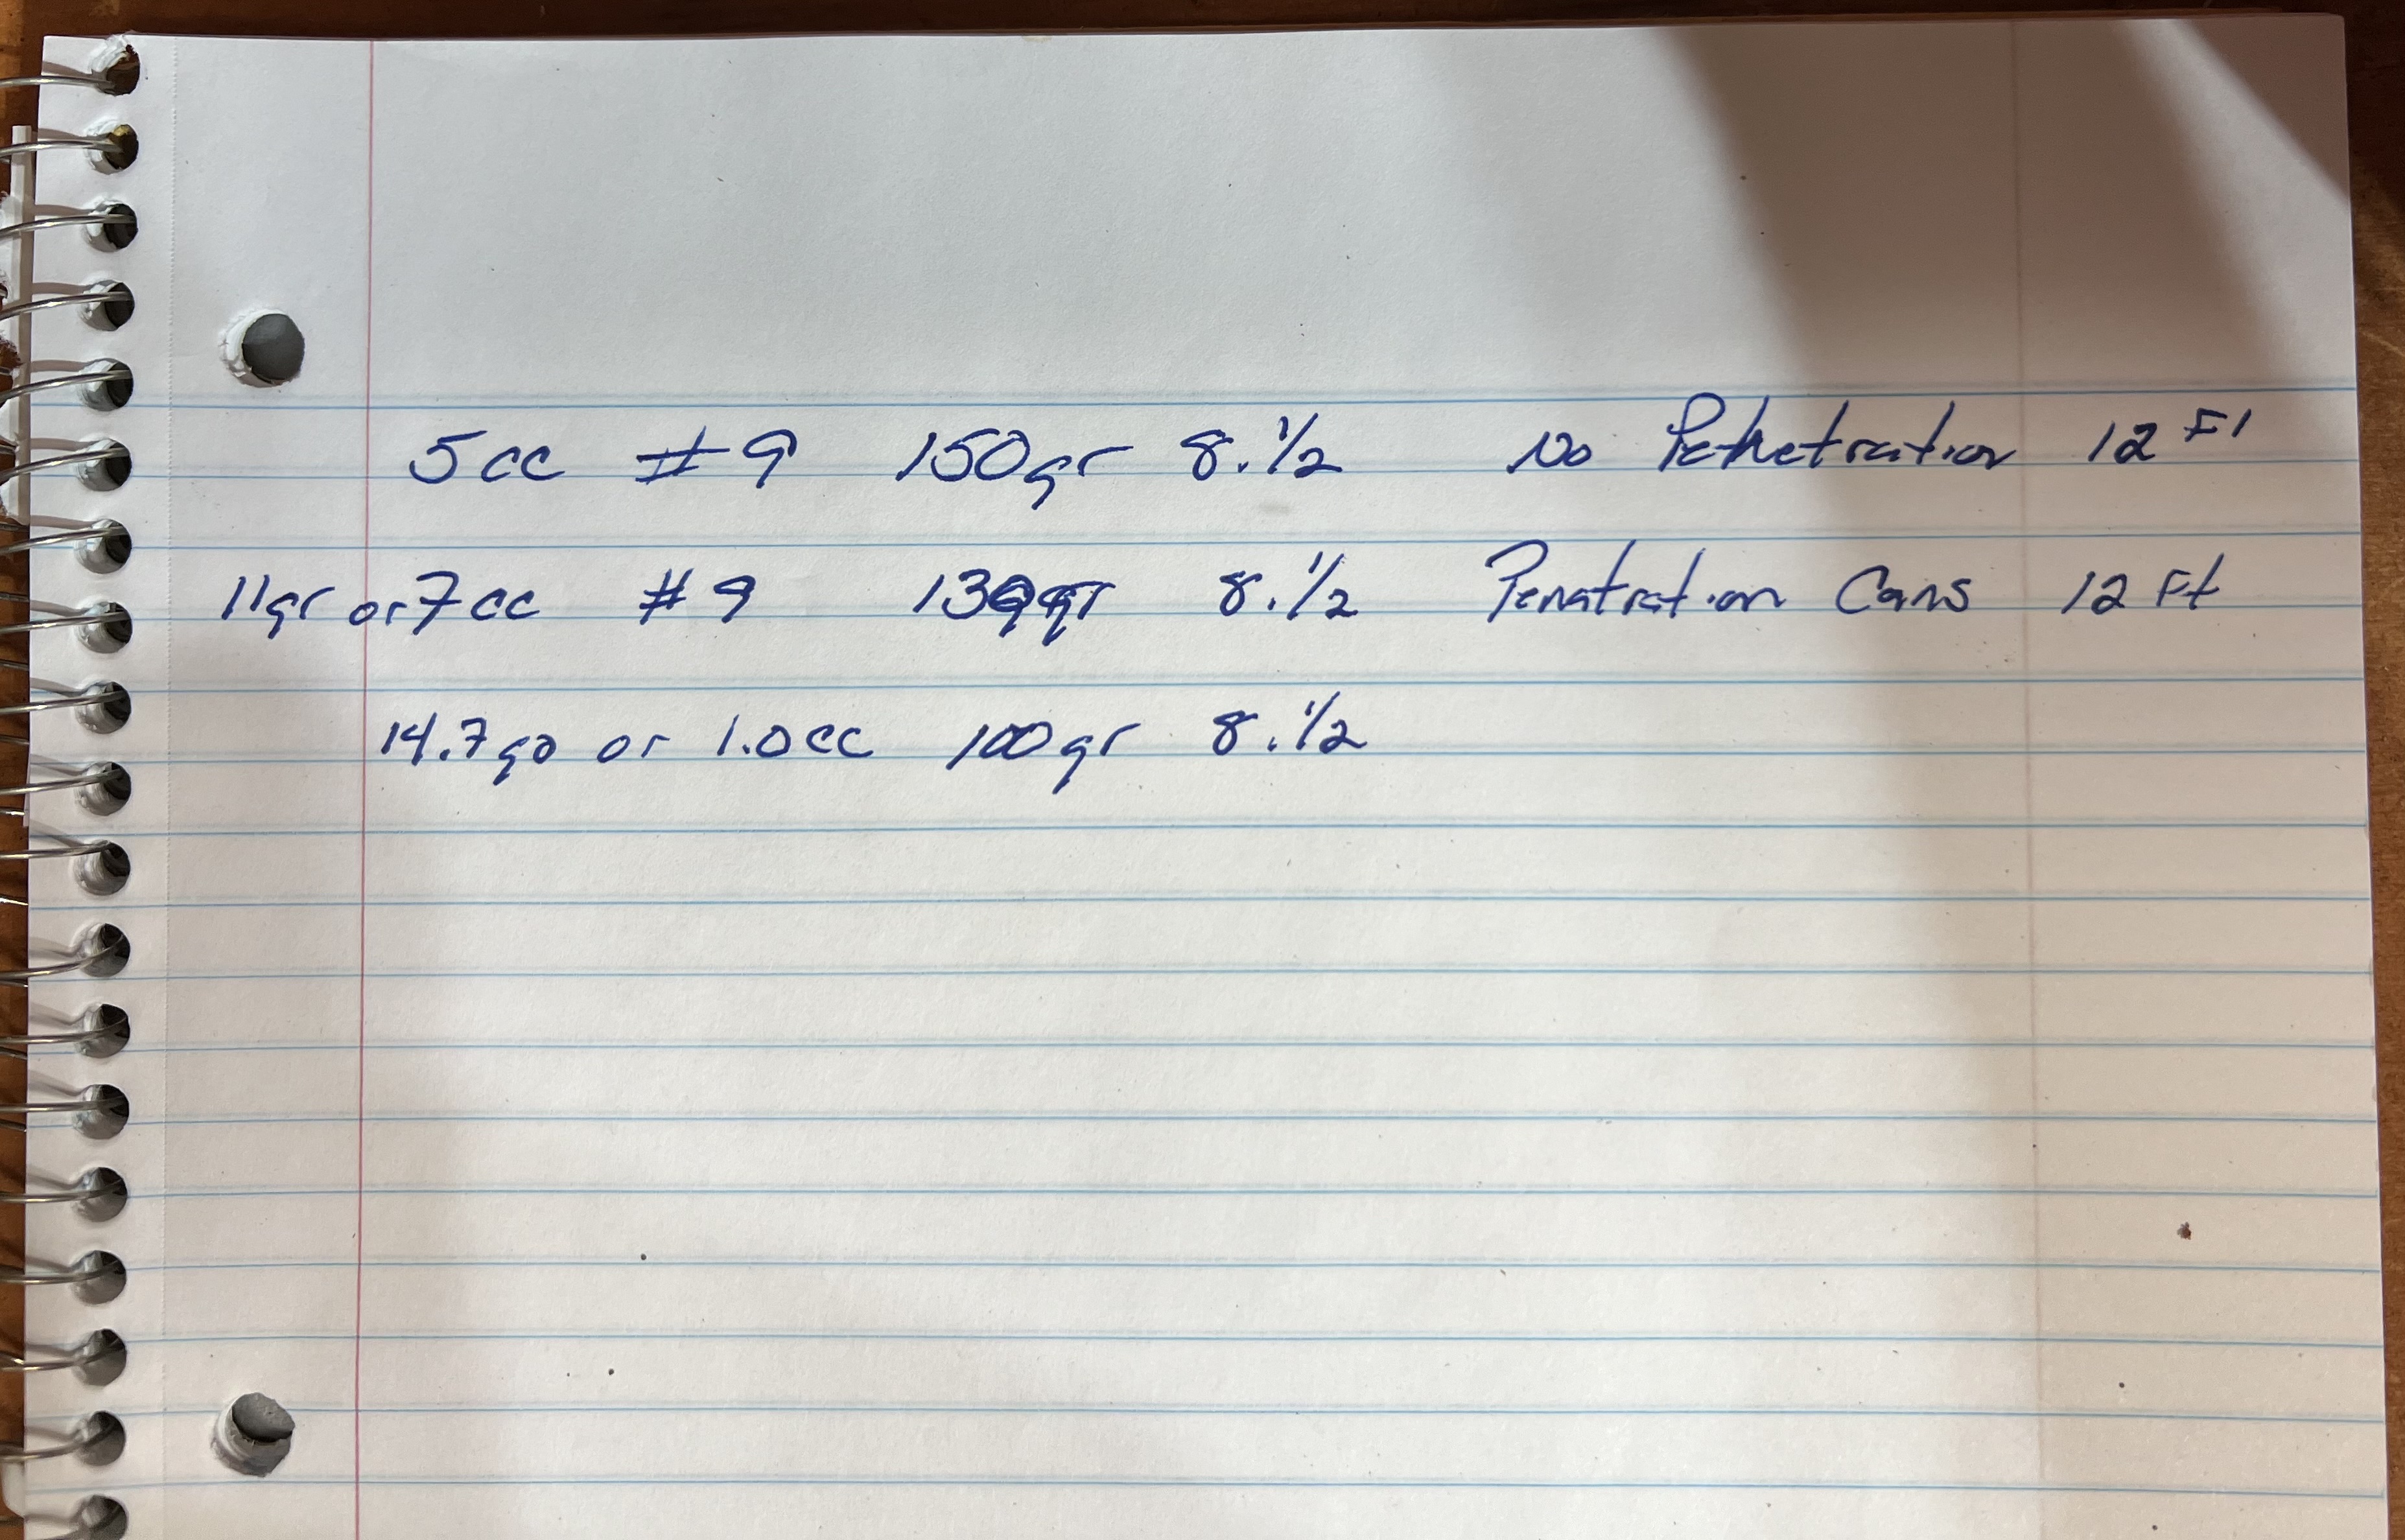 5cc #9 150gr 8.1/2 No Penetration 12 Ft
11gr or 7cc #9 130gr 8.1/2 Penatration Cans 12 Ft
14.7go or 1.0cc 100gr 8.1/2